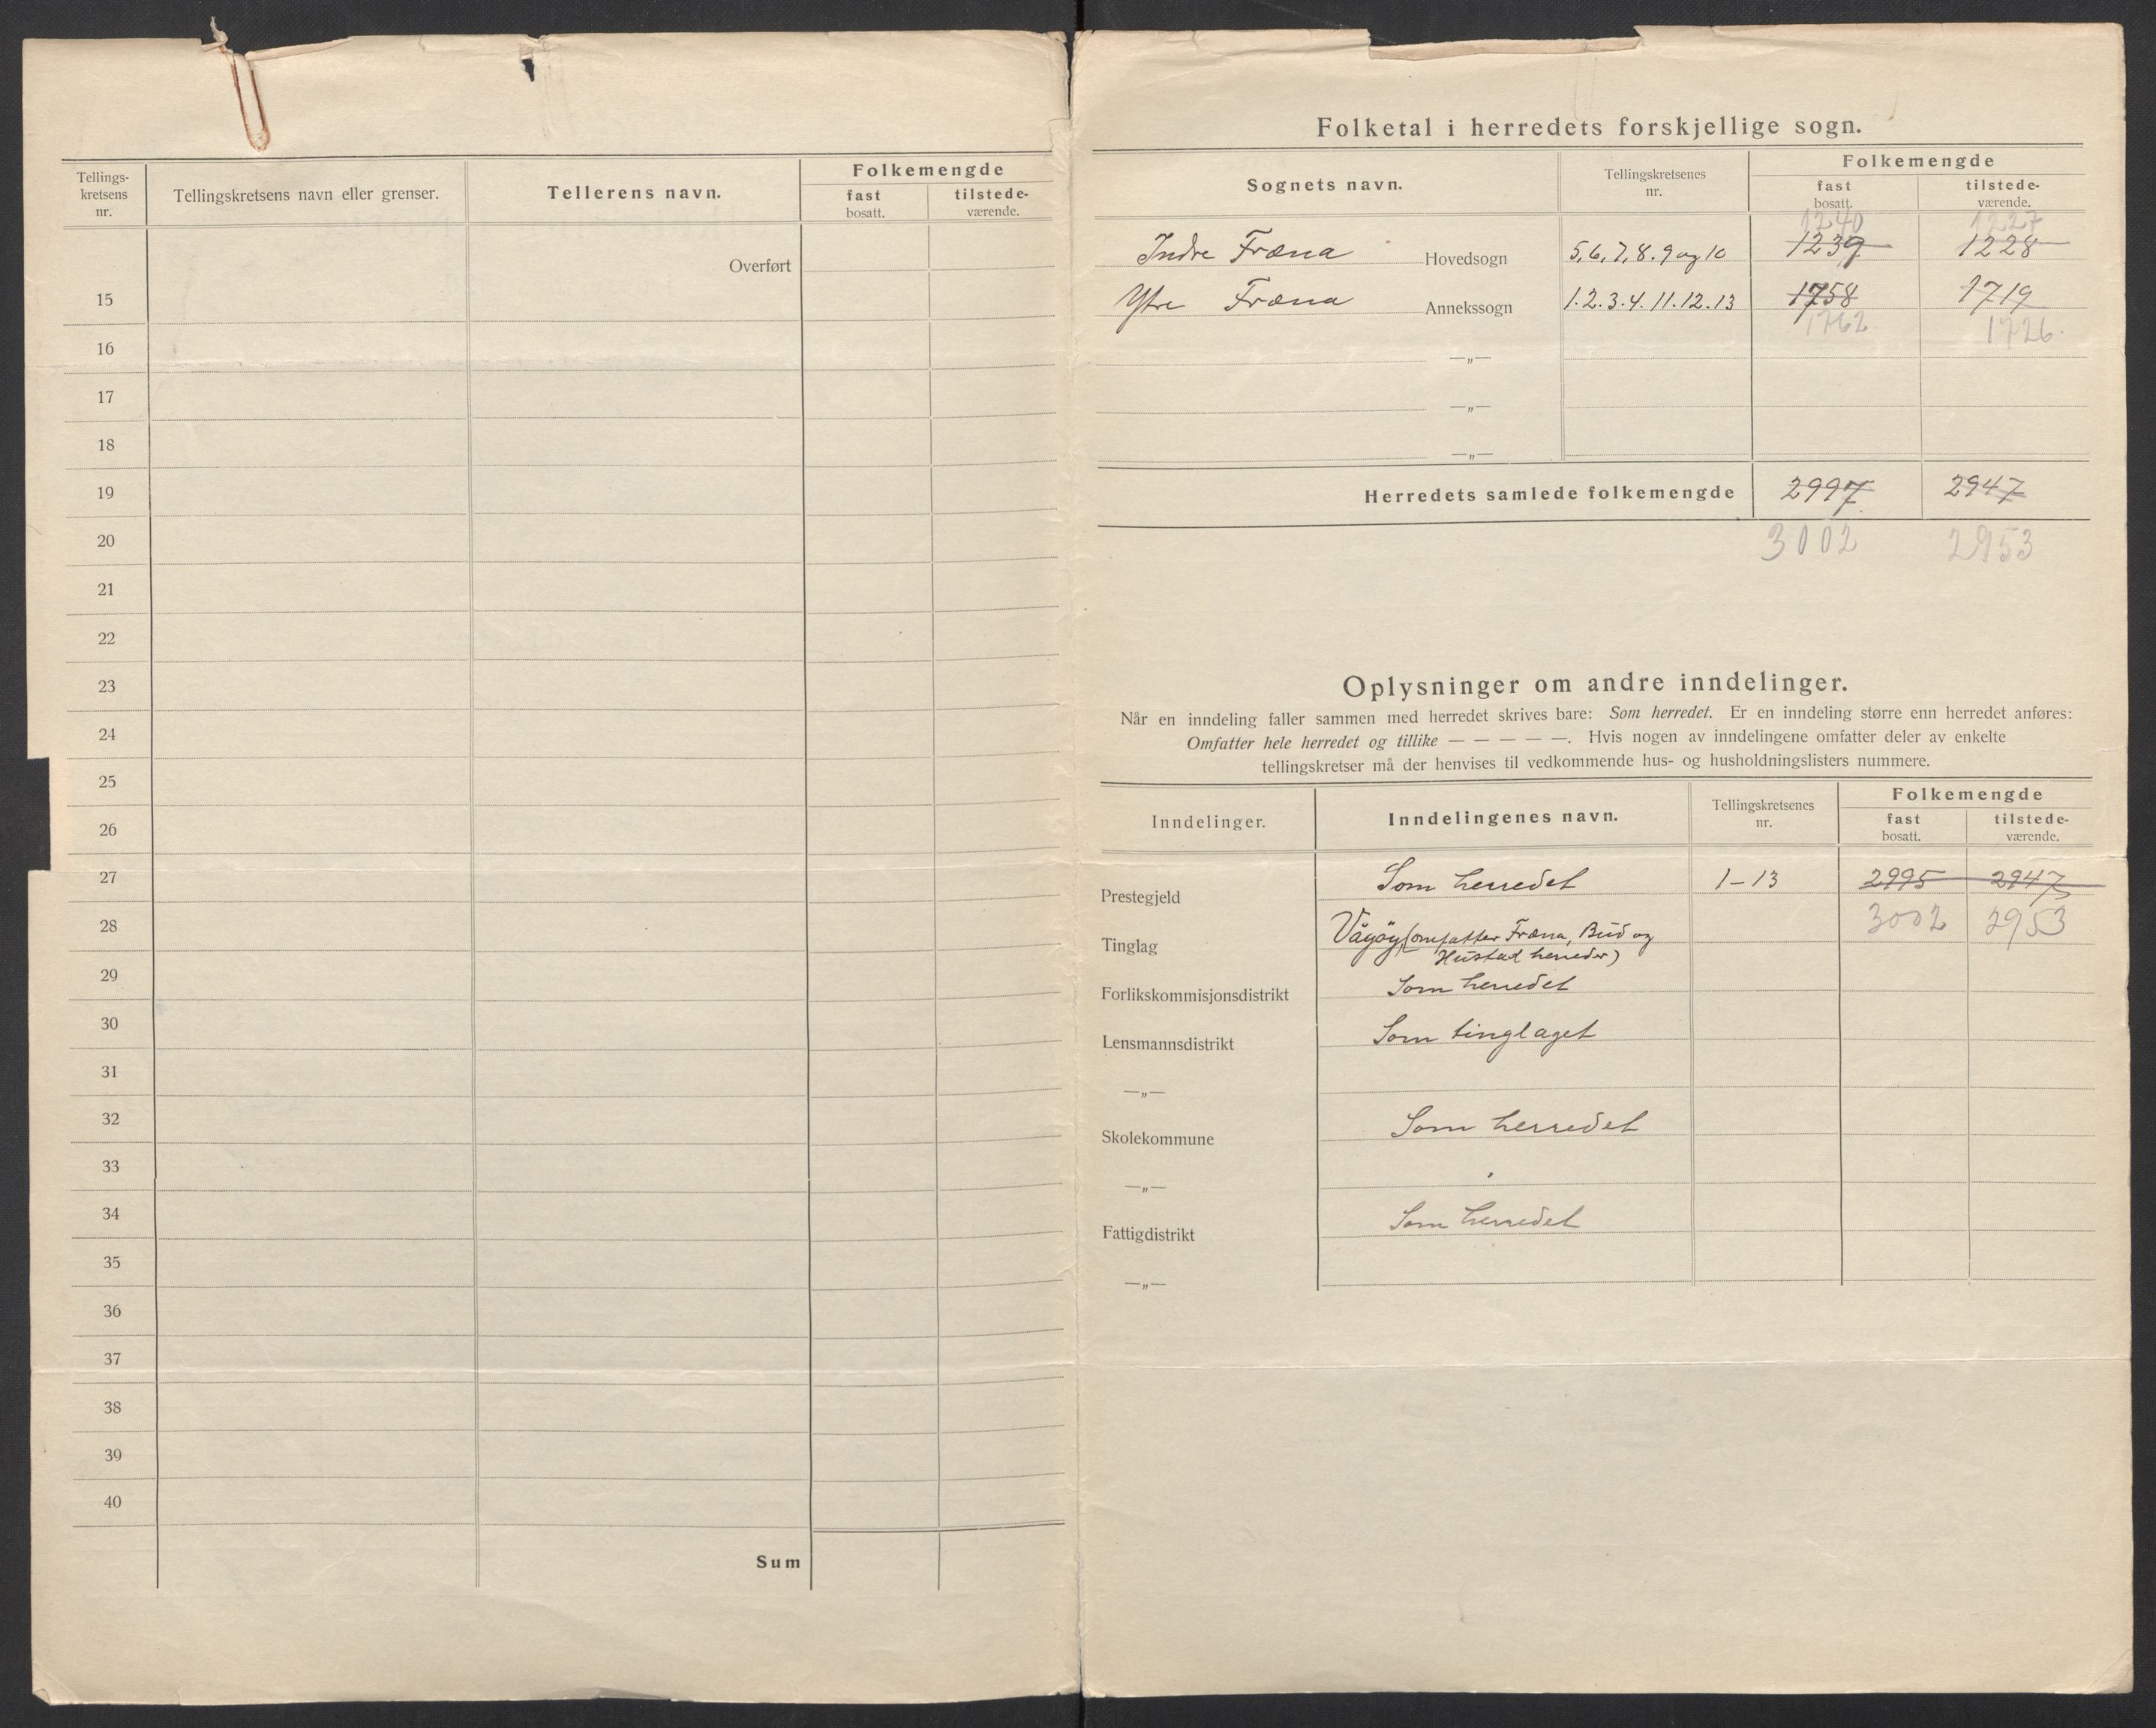 Tellings-
kretsens
nr.
Tellingskretsens navn eller grenser.
Tellerens navn.
Folkemengde
fast
bosatt.
tilstede-
værende.
Overført
15
16
17
18
19
20
21
22
23
24
25
26
27
28
29
30
31
32
33
34
35
36
37
38
39
40
Sum
Folketal i herredets forskjellige sogn.
Sognets navn.
Tellingskretsenes
nr.
Folkemengde
fast
bosatt.
tilstede-
værende.
1240 1227
Indre Fræna Hovedsogn 5, 6, 7, 8. 9 og 10 1239 1228
Ytre Fræna Annekssogn 1. 2. 3. 4. 11. 12. 13 1758 1719
1762 1726.
—„—
—„—
—„—
Herredets samlede folkemengde 2997 2947
3002 2953
Oplysninger om andre inndelinger.
Når en inndeling faller sammen med herredet skrives bare: Som herredet. Er en inndeling større enn herredet anføres:
Omfatter hele herredet og tillike — — — — —. Hvis nogen av inndelingene omfatter deler av enkelte
tellingskretser må der henvises til vedkommende hus- og husholdningslisters nummere.
Inndelinger.
Inndelingenes navn.
Tellingskretsenes
nr.
Folkemengde
fast
bosatt.
tilstede-
værende.
Prestegjeld Som herredet 1–13 2995 2947
3002 2953
Tinglag Vågøy (omfatter Fræna, Bud og
Hustad herreder)
Forlikskommisjonsdistrikt Som herredet
Lensmannsdistrikt Som tinglaget
—„—
Skolekommune Som herredet
—„—
Fattigdistrikt Som herredet
—„—